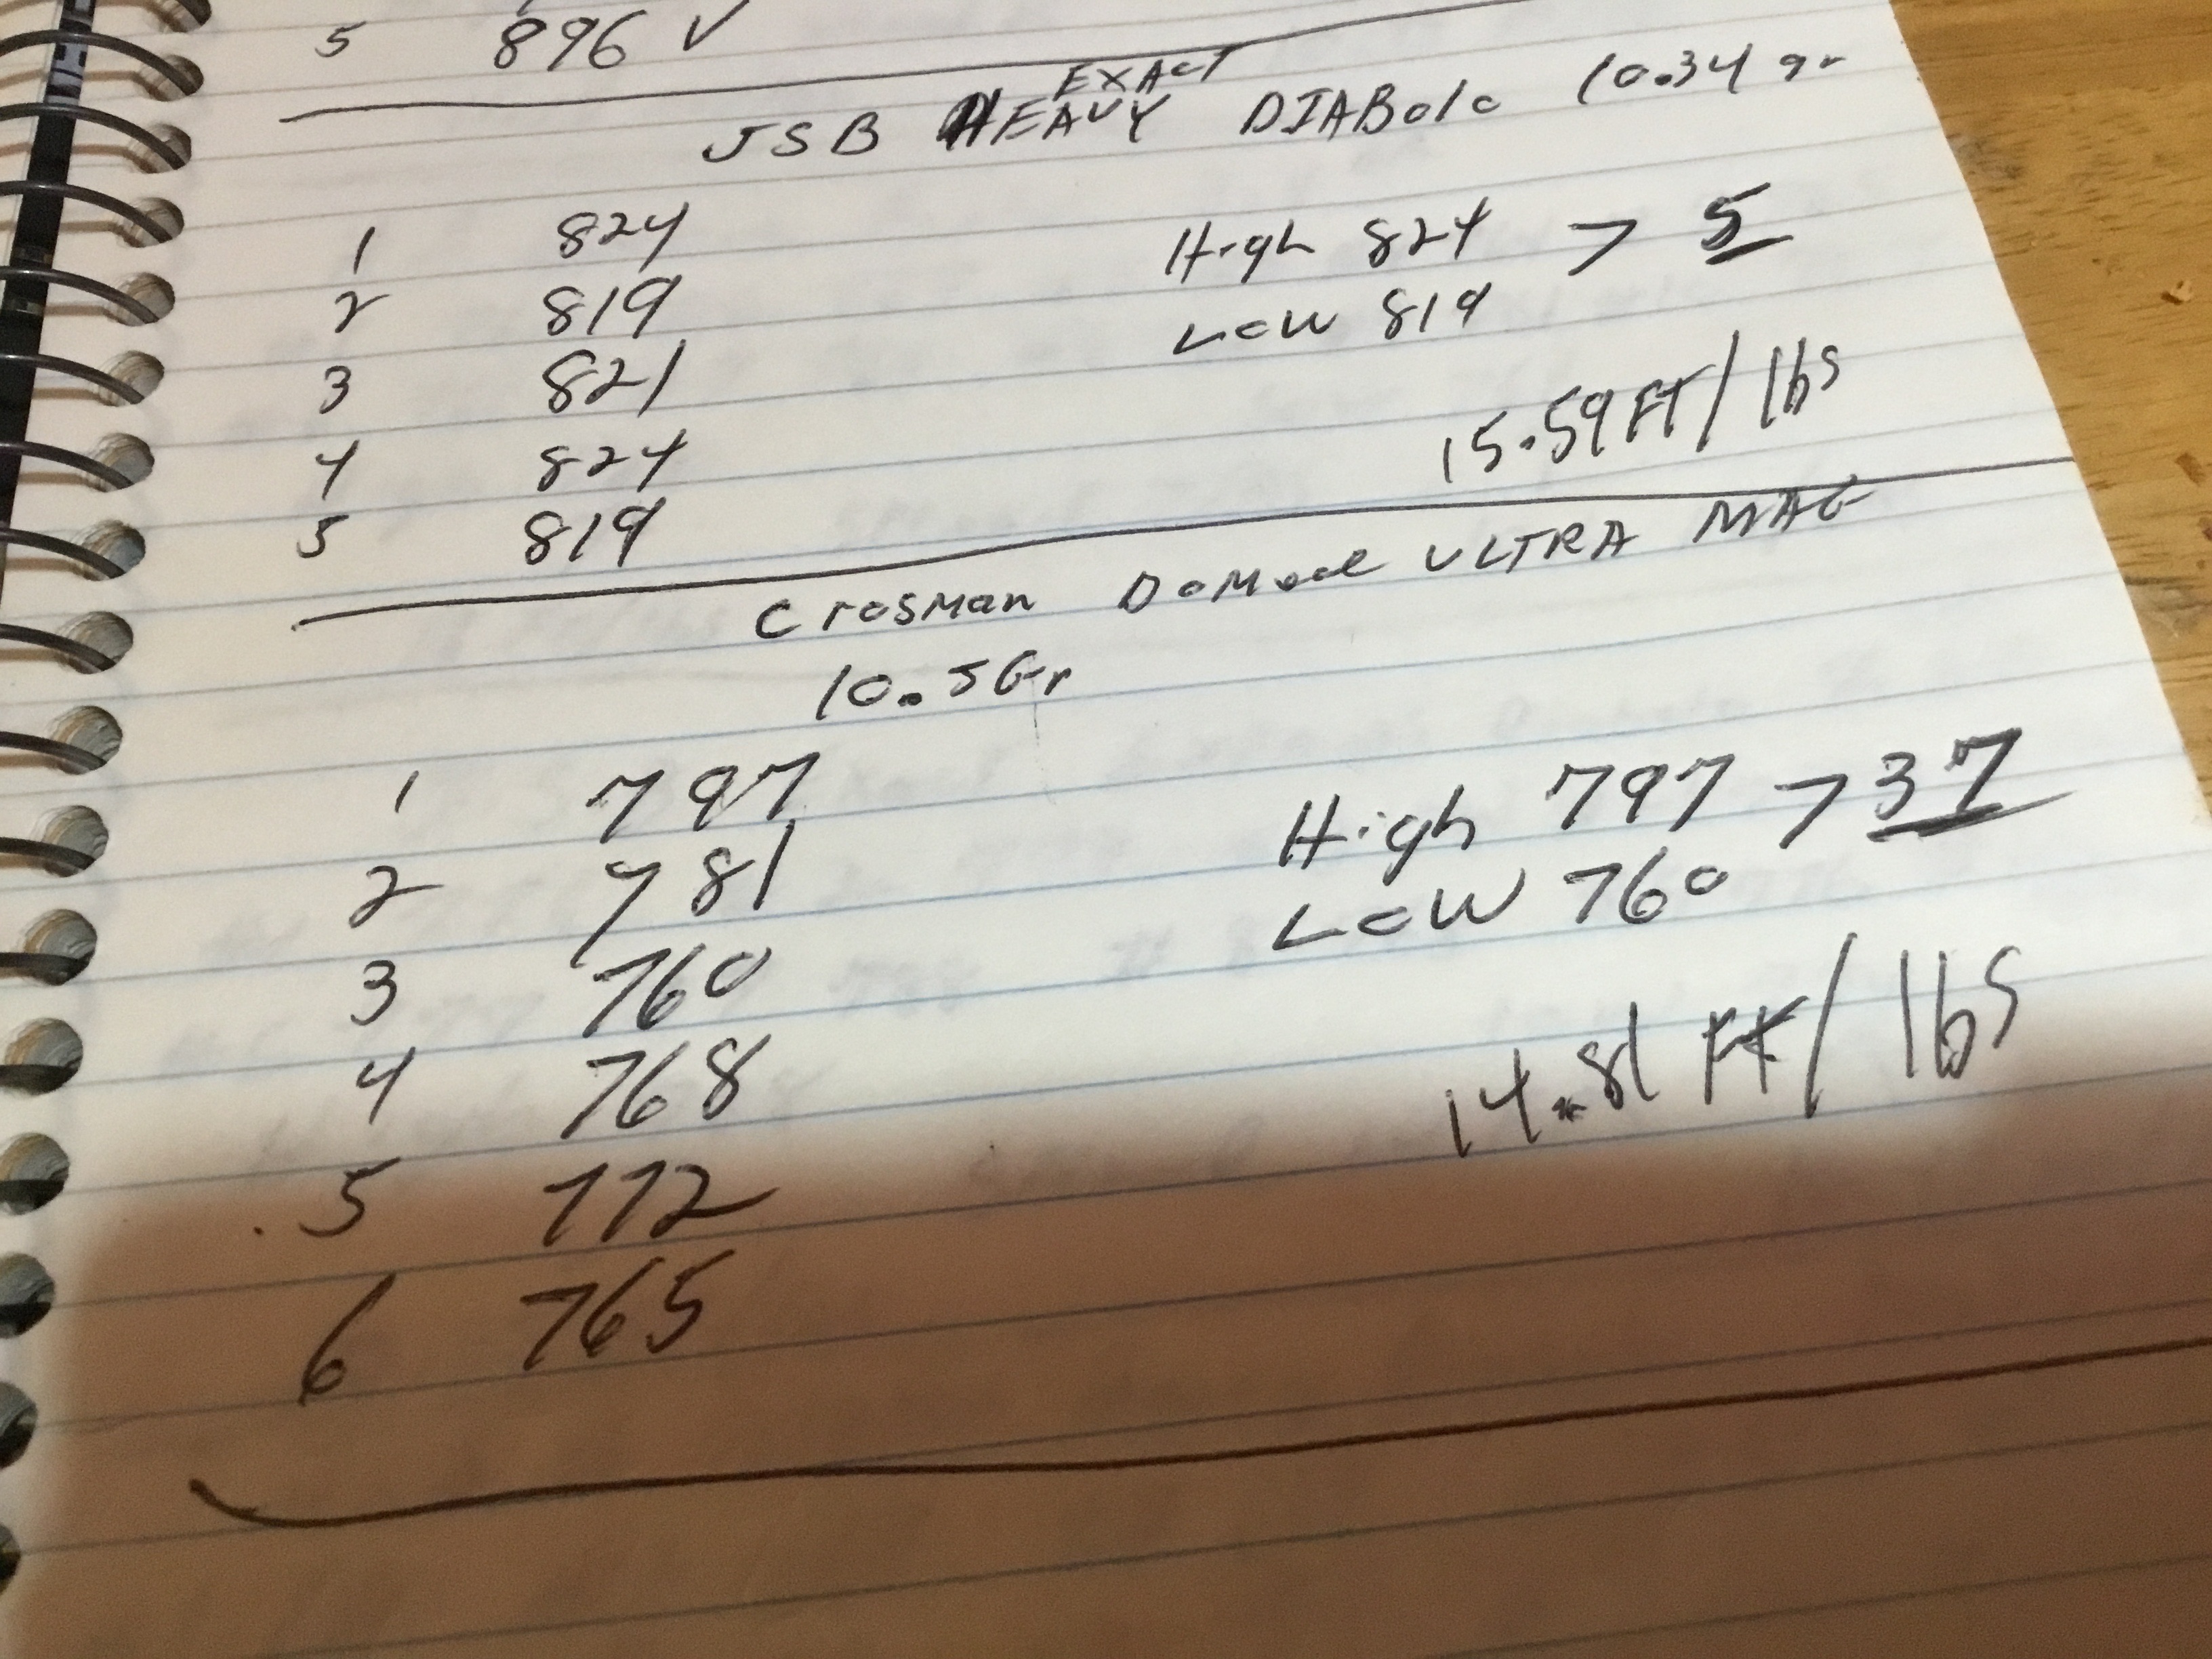 5 896 ✓
EXACT
JSB HEAVY DIABolo 10.34 gr
1 824 High 824 > 5
2 819 Low 819
3 821
4 824 15.59 Ft/lbs
5 819
Crosman DoMed ULTRA MAG
10.5Gr
1 797 High 797 > 37
2 781 Low 760
3 760
4 768 14.81 Ft/lbs
5 772
6 765